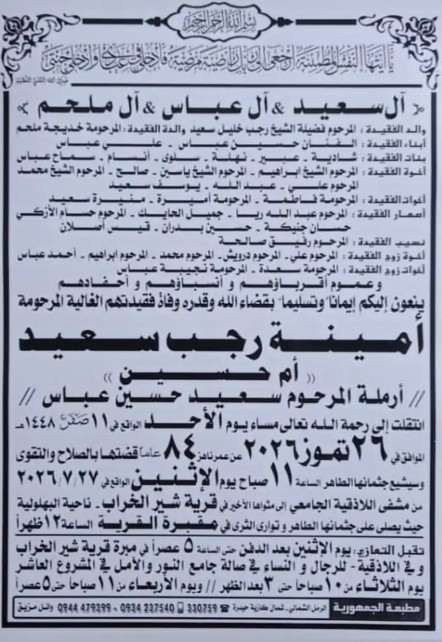 بسم الله الرحمن الرحيم
يا أيتها النفس المطمئنة ارجعي إلى ربك راضية مرضية فادخلي في عبادي وادخلي جنتي
صدق الله العلي العظيم
آل سعيد & آل عباس & آل ملحم
والد الفقيدة : المرحوم فضيلة الشيخ رجب خليل سعيد والدة الفقيدة : المرحومة خديجة ملحم
أبناء الفقيدة : الفنان حسين عباس - علي عباس
بنات الفقيدة : شادية - عبير - نهلة - سلوى - أنسام - سماح عباس
أخوة الفقيدة : المرحوم الشيخ ابراهيم - المرحوم الشيخ ياسين - صالح - المرحوم الشيخ محمد
المرحوم علي - عبد الله - يوسف سعيد
أخوات الفقيدة : المرحومة فاطمة - المرحومة أميرة - منيرة سعيد
أصهار الفقيدة : المرحوم عبد الله ريا - جميل الحايك - المرحوم حسام الأزكي
حسان جنيكة - حسين بدران - قيس أصلان
نسيب الفقيدة : المرحوم رفيق صالحة
أخوة زوج الفقيدة : المرحوم علي - المرحوم درويش - المرحوم محمد - المرحوم ابراهيم - أحمد عباس
أخوات زوج الفقيدة : المرحومة سعدة - المرحومة نجيبة عباس
وعموم أقرباؤهم و أنسباؤهم و أحفادهم
ينعون إليكم إيمانا وتسليما بقضاء الله وقدره وفاة فقيدتهم الغالية المرحومة
أمينة رجب سعيد
(( أم حسين ))
// أرملة المرحوم سعيد حسين عباس //
انتقلت إلى رحمة الله تعالى مساء يوم الأحد الواقع في ١١ صفر ١٤٤٨ هـ
الموافق في ٢٦ تموز ٢٠٢٦ عن عمر ناهز ٨٤ عاما قضتها بالصلاح والتقوى
وسيشيع جثمانها الطاهر الساعة ١١ صباح يوم الإثنين الواقع في ٢٠٢٦/٧/٢٧
من مشفى اللاذقية الجامعي إلى مثواها الأخير في قرية شير الخراب - ناحية البهلولية
حيث يصلى على جثمانها الطاهر و توارى الثرى في مقبرة القرية الساعة ١٢ ظهرا
تقبل التعازي : يوم الإثنين بعد الدفن حتى الساعة ٥ عصرا في مبرة قرية شير الخراب
و في اللاذقية - للرجال و النساء في صالة جامع النور والأمل في المشروع العاشر
يوم الثلاثاء من ١٠ صباحا حتى ٣ بعد الظهر // ويوم الأربعاء من ١١ صباحا حتى ٥ عصرا
مطبعة الجمهورية الرمل الشمالي - شمال كازية حيدرة 330759 0934 237540 - 0944 479399 وائل مزيق